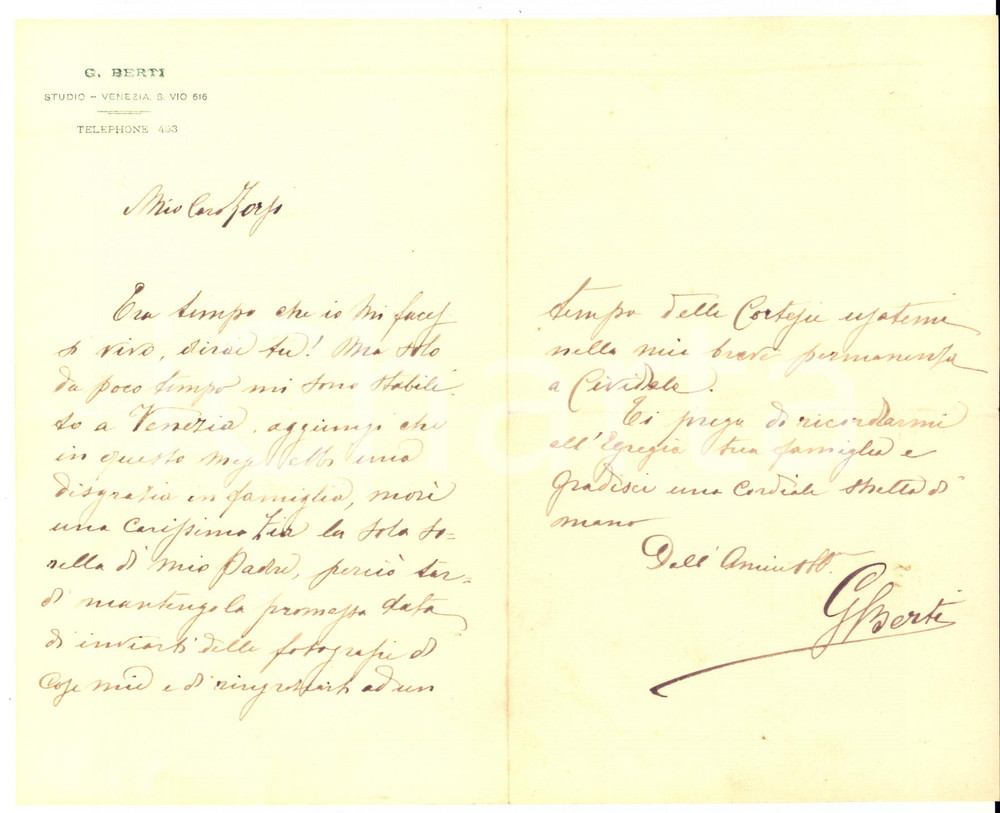 G. BERTI
STUDIO – VENEZIA, S. VIO 616
TELEPHONE 403
Mio Caro Zorzi
Era tempo che io mi faces
si vivo, dirai tu! Ma solo
da poco tempo mi sono stabili-
to a Venezia, aggiungi che
in questo mese ebbi una
disgrazia in famiglia, morì
una carissima Zia la sola so=
rella di mio Padre, perciò tar=
di mantengo la promessa data
di inviarti delle fotografie di
cose mie e di ringraziarti ad un
tempo delle Cortesie usatemi
nella mia breve permanenza
a Cividale.
Ti prego di ricordarmi
all'Egregia tua famiglia e
gradisci una cordiale stretta di
mano
Dall'
GBerti